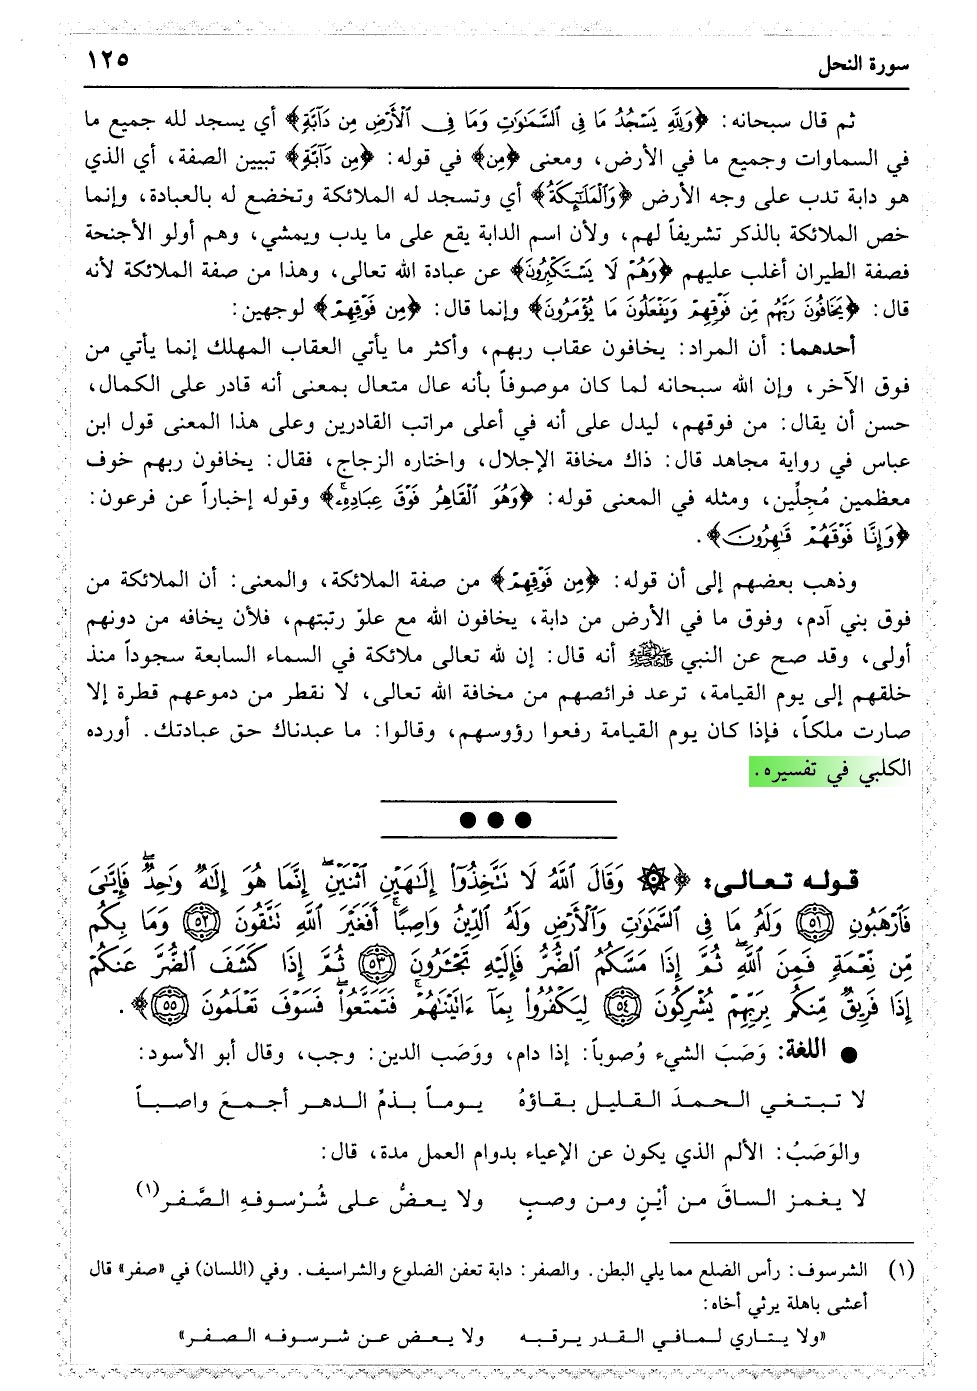 سورة النحل ١٢٥
ثم قال سبحانه: ﴿وَلِلَّهِ يَسْجُدُ مَا فِي السَّمَٰوَٰتِ وَمَا فِي الْأَرْضِ مِن دَآبَّةٍ﴾ أي يسجد لله جميع ما
في السماوات وجميع ما في الأرض، ومعنى ﴿مِن﴾ في قوله: ﴿مِن دَآبَّةٍ﴾ تبيين الصفة، أي الذي
هو دابة تدب على وجه الأرض ﴿وَالْمَلَٰٓئِكَةُ﴾ أي وتسجد له الملائكة وتخضع له بالعبادة، وإنما
خص الملائكة بالذكر تشريفاً لهم، ولأن اسم الدابة يقع على ما يدب ويمشي، وهم أولو الأجنحة
فصفة الطيران أغلب عليهم ﴿وَهُمْ لَا يَسْتَكْبِرُونَ﴾ عن عبادة الله تعالى، وهذا من صفة الملائكة لأنه
قال: ﴿يَخَافُونَ رَبَّهُم مِّن فَوْقِهِمْ وَيَفْعَلُونَ مَا يُؤْمَرُونَ﴾ وإنما قال: ﴿مِن فَوْقِهِمْ﴾ لوجهين:
أحدهما: أن المراد: يخافون عقاب ربهم، وأكثر ما يأتي العقاب المهلك إنما يأتي من
فوق الآخر، وإن الله سبحانه لما كان موصوفاً بأنه عال متعال بمعنى أنه قادر على الكمال،
حسن أن يقال: من فوقهم، ليدل على أنه في أعلى مراتب القادرين وعلى هذا المعنى قول ابن
عباس في رواية مجاهد قال: ذاك مخافة الإجلال، واختاره الزجاج، فقال: يخافون ربهم خوف
معظمين مُجلِّين، ومثله في المعنى قوله: ﴿وَهُوَ الْقَاهِرُ فَوْقَ عِبَادِهِۦ﴾ وقوله إخباراً عن فرعون:
﴿وَإِنَّا فَوْقَهُمْ قَٰهِرُونَ﴾.
وذهب بعضهم إلى أن قوله: ﴿مِن فَوْقِهِمْ﴾ من صفة الملائكة، والمعنى: أن الملائكة من
فوق بني آدم، وفوق ما في الأرض من دابة، يخافون الله مع علوّ رتبتهم، فلأن يخافه من دونهم
أولى، وقد صح عن النبي ﷺ أنه قال: إن لله تعالى ملائكة في السماء السابعة سجوداً منذ
خلقهم إلى يوم القيامة، ترعد فرائصهم من مخافة الله تعالى، لا نقطر من دموعهم قطرة إلا
صارت ملكاً، فإذا كان يوم القيامة رفعوا رؤوسهم، وقالوا: ما عبدناك حق عبادتك. أورده
الكلبي في تفسيره.
قوله تعالى: ﴿۞ وَقَالَ اللَّهُ لَا تَتَّخِذُوٓا إِلَٰهَيْنِ اثْنَيْنِ ۖ إِنَّمَا هُوَ إِلَٰهٌ وَٰحِدٌ ۖ فَإِيَّٰيَ
فَارْهَبُونِ ٥١ وَلَهُۥ مَا فِي السَّمَٰوَٰتِ وَالْأَرْضِ وَلَهُ الدِّينُ وَاصِبًا ۚ أَفَغَيْرَ اللَّهِ نَتَّقُونَ ٥٢ وَمَا بِكُم
مِّن نِّعْمَةٍ فَمِنَ اللَّهِ ۖ ثُمَّ إِذَا مَسَّكُمُ الضُّرُّ فَإِلَيْهِ تَجْـَٔرُونَ ٥٣ ثُمَّ إِذَا كَشَفَ الضُّرَّ عَنكُمْ
إِذَا فَرِيقٌ مِّنكُم بِرَبِّهِمْ يُشْرِكُونَ ٥٤ لِيَكْفُرُوا بِمَآ ءَاتَيْنَٰهُمْ ۚ فَتَمَتَّعُوا ۖ فَسَوْفَ تَعْلَمُونَ ٥٥﴾.
● اللغة: وَصَبَ الشيء وُصوباً: إذا دام، ووَصَب الدين: وجب، وقال أبو الأسود:
لا تبتغي الحمدَ القليل بقاؤهُ يوماً بذمّ الدهر أجمعَ واصباً
والوَصَبُ: الألم الذي يكون عن الإعياء بدوام العمل مدة، قال:
لا يغمز الساقَ من أيْنٍ ومن وصبٍ ولا يعضُّ على شُرْسوفهِ الصَّفر(١)
(١) الشرسوف: رأس الضلع مما يلي البطن. والصفر: دابة تعفن الضلوع والشراسيف. وفي (اللسان) في «صفر» قال
أعشى باهلة يرثي أخاه:
«ولا يتاري لمافي القدر يرقبه ولا يعض عن شرسوفه الصفر»